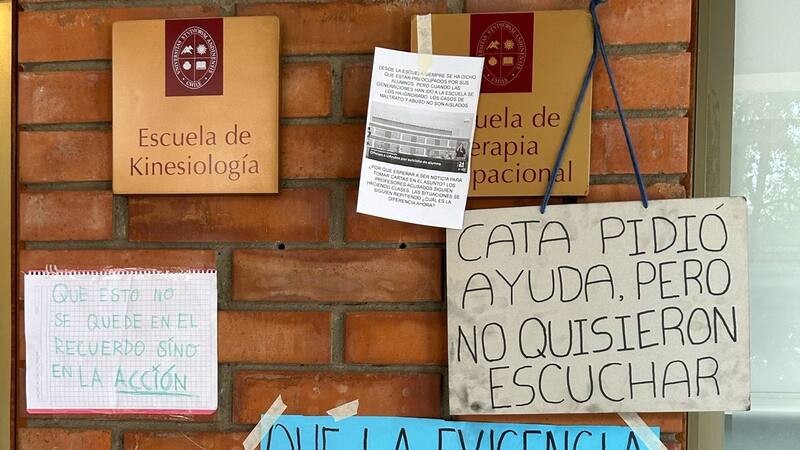 Escuela de
Kinesiología
DESDE LA ESCUELA SIEMPRE SE HA DICHO
QUE ESTÁN PREOCUPADOS POR SUS
ALUMNOS. PERO CUANDO LAS
GENERACIONES HAN IDO A LA ESCUELA SE
LOS HA IGNORADO. LOS CASOS DE
MALTRATO Y ABUSO NO SON AISLADOS
¿POR QUE ESPERAR A SER NOTICIA PARA
TOMAR CARTAS EN EL ASUNTO? LOS
PROFESORES ACUSADOS SIGUEN
HACIENDO CLASES, LAS SITUACIONES SE
SIGUEN REPITIENDO ¿CUÁL ES LA
DIFERENCIA AHORA?
uela de
erapia
pacional
QUE ESTO NO
SE QUEDE EN EL
RECUERDO SINO
EN LA ACCIÓN
CATA PIDIÓ
AYUDA, PERO
NO QUISIERON
ESCUCHAR
QUE LA EXIGENCIA